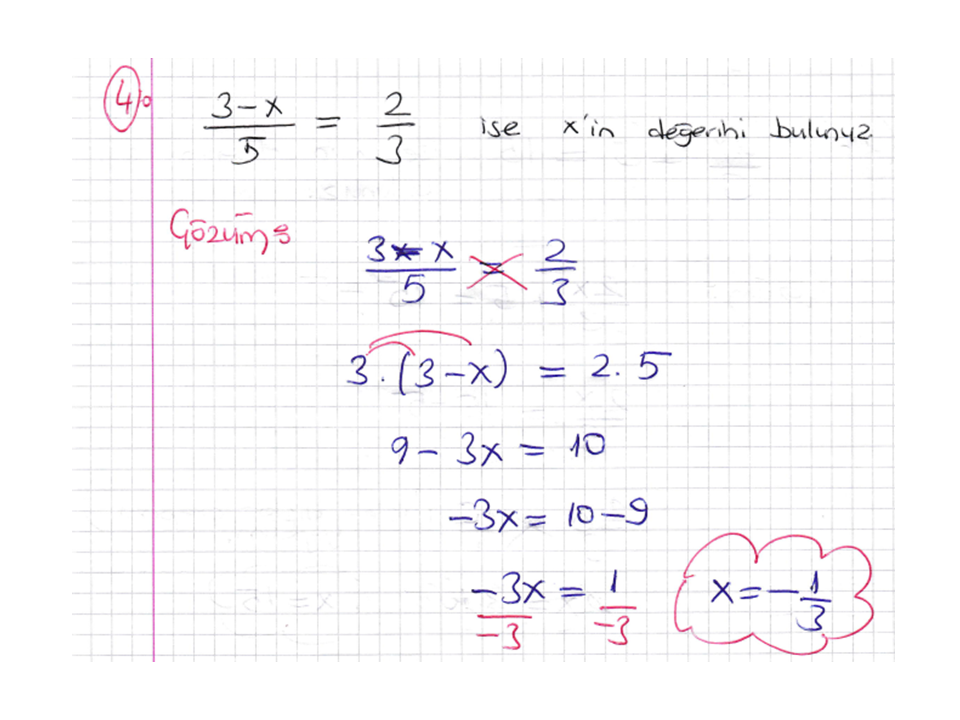 4)
3-x/5 = 2/3 ise x'in değerini bulunuz
Çözüm:
3-x/5 = 2/3
3.(3-x) = 2.5
9-3x = 10
-3x = 10-9
-3x/-3 = 1/-3
x = -1/3